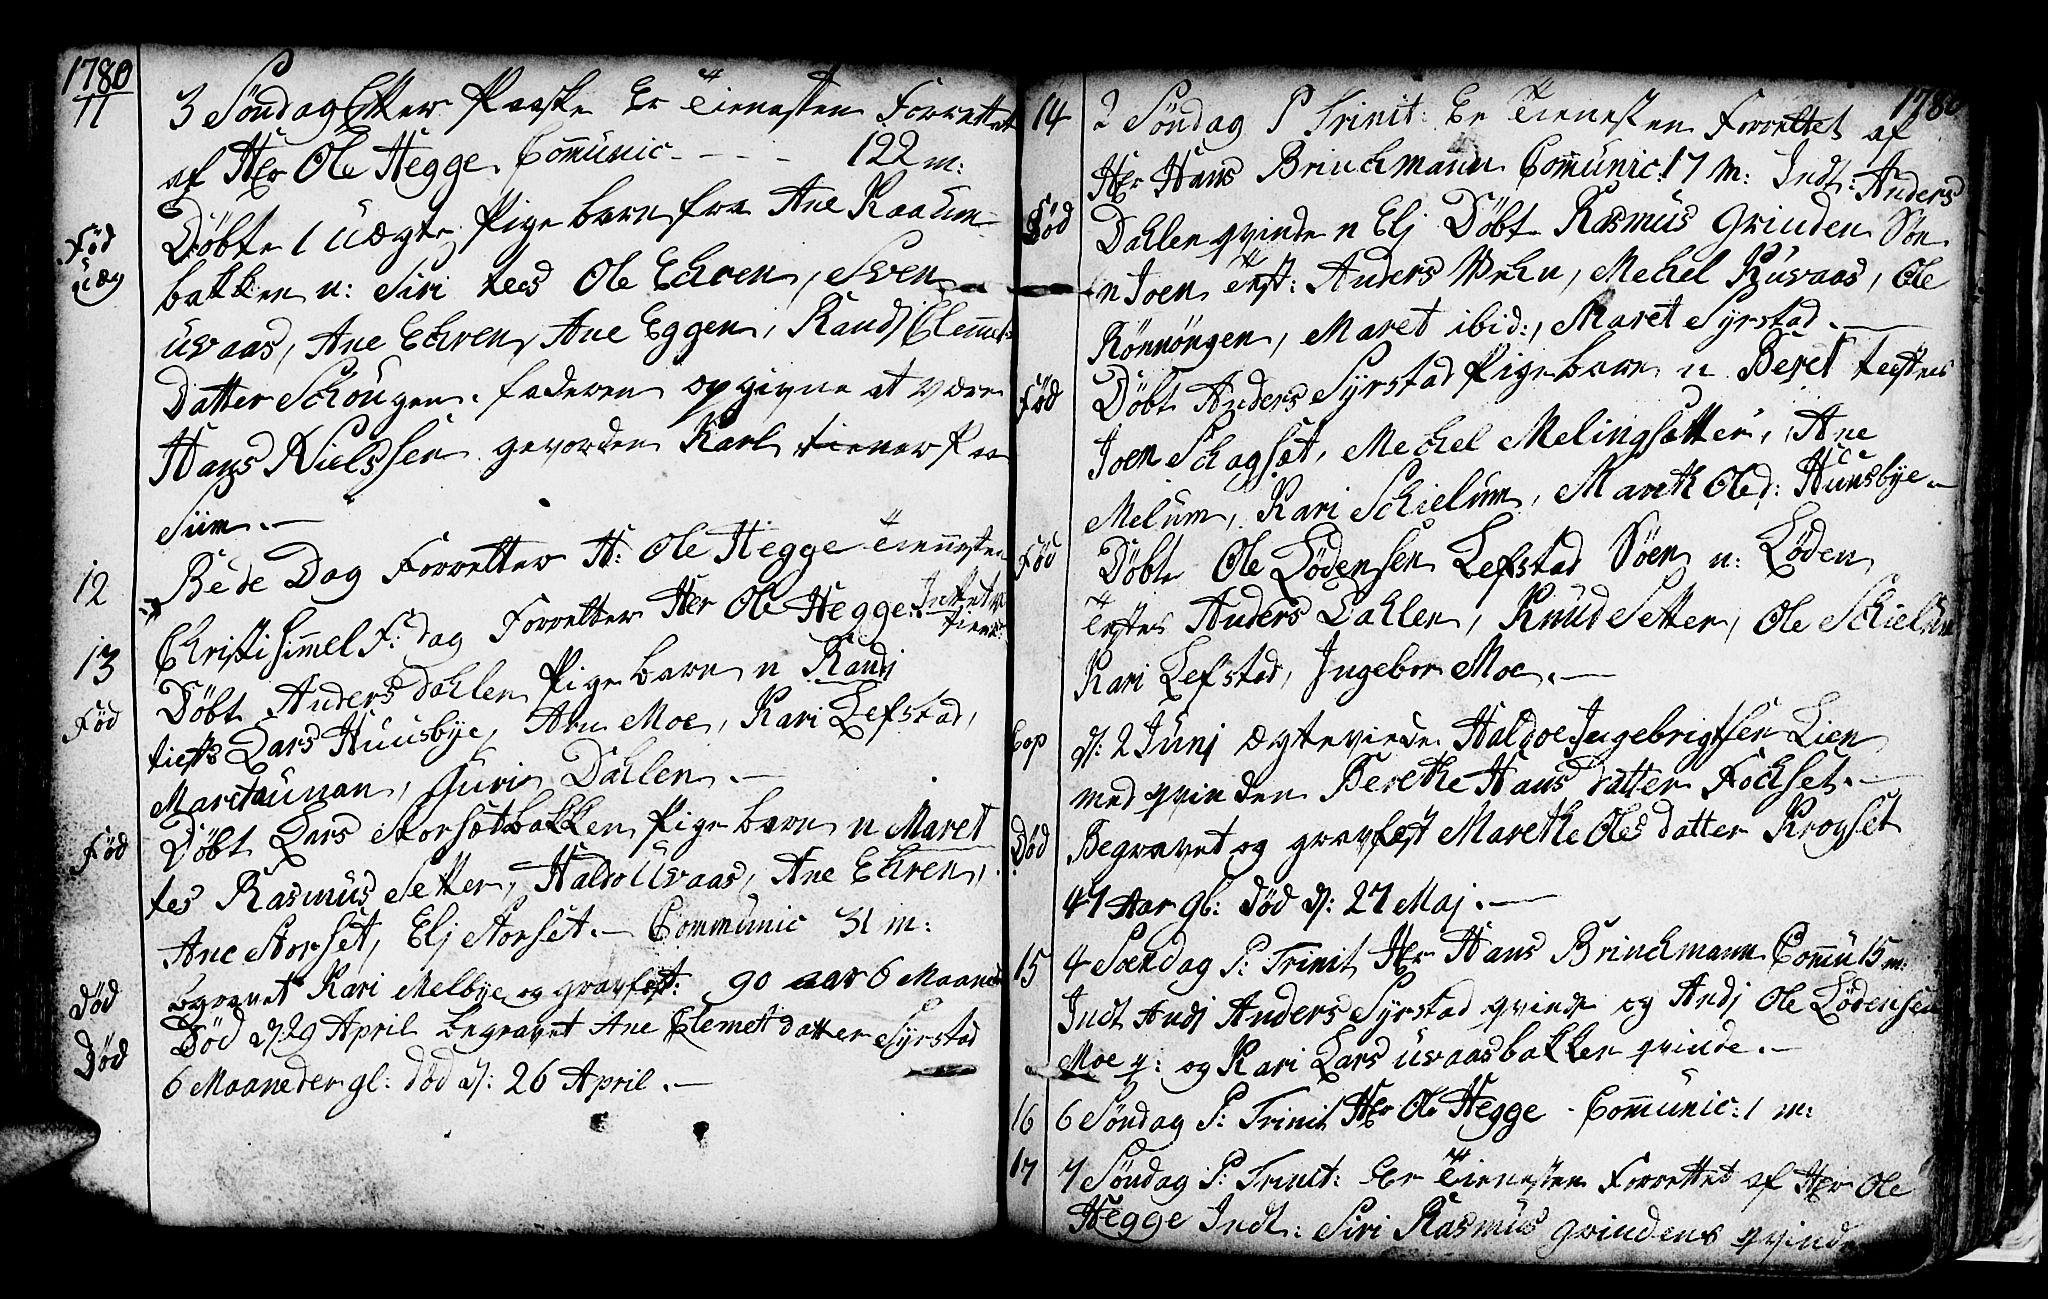 1780
11 3 Söndag Efter Paaske Er Tienesten Forrettet
af Hr Ole Hegge. Communic - - - - 122 m:
Död uæg
Döbte 1 Uægte Pige barn fra Ane Raaum
bakken n: Siri tes Ole Ehren, Sven
Uvaas, Ane Ehren, Ane Eggen, Randj Clemmets
Datter Schougen. faderen opgivne at være
Hans Nielssen gevorden Karl tiener Paa
Siim.—
12 Bede Dag Forretter H: Ole Hegge Tiennesten
13 Christi himmel F: dag Forretter Her Ole Hegge. Intet
Föd Döbt Anders Dahlen Pige barn n Randj
tests Lars Huusbye, Arn Moe, Kari Lefstad,
Maret aunan, Guri Dahlen.—
Föd Döbt Lars Storsetbakken Pige barn n Maret
tes Rasmus Setter, Haldo Uvaas, Ane Ehren,
Ane Storset, Elj Storset.— Communic 31 m:
Död begravet Kari Melbye og gravfæst: 90 aar 6 Maaneder
Död Död d: 29 April begravet Ane Clemet datter Syrstad
6 Maaneder gl: död d: 26 April.—
1780
14 2 Söndag P Trinit: Er Tienesten Forrettet af
Hr Hans Brinchmann Communic: 17 m: Indt: Anders
Föd Dahlen qvinde n Elj Döbt Rasmus Grinden Sön
n Joen Test: Anders Wehn, Mechel Kusvaas, Ole
Rönnöngen, Maret ibid:, Maret Syrstad.—
Föd Döbt Anders Syrstad Pige barn n Beret testes
Joen Schogset, Mechel Melingsetter, Ane
Melum, Kari Schielum, Mareth Oled: Huusbye.—
Föd Döbt Ole Lödensen Lefstad Söen n: Löden
Testes Anders Dahlen, Knud Setter, Ole Schielum
Kari Lefstad, Ingebor Moe.—
Cop d: 2 Junj ægteviede Haldoe Ingebrigtsen Lien
med qvinden Berethe Hans datter Fochset.—
Död Begravet og gravfæst Marethe Oles datter Krogset
47 Aar gl: död d: 27 Maj.—
15 4 Söendag P: Trinit Hr Hans Brinchmann Commu 15 m:
Indt Andj Anders Syrstad qvinde og Andj Ole Lödensen
Moe q: og Kari Lars Uvaasbakken qvinde.—
16 6 Söndag P: Trinit Hr Ole Hegge - Communic: 1 m:
17 7 Söndag P: Trinit: Er Tienesten Forrettet af Her Ole
Hegge Indt: Siri Rasmus Grindens qvinde